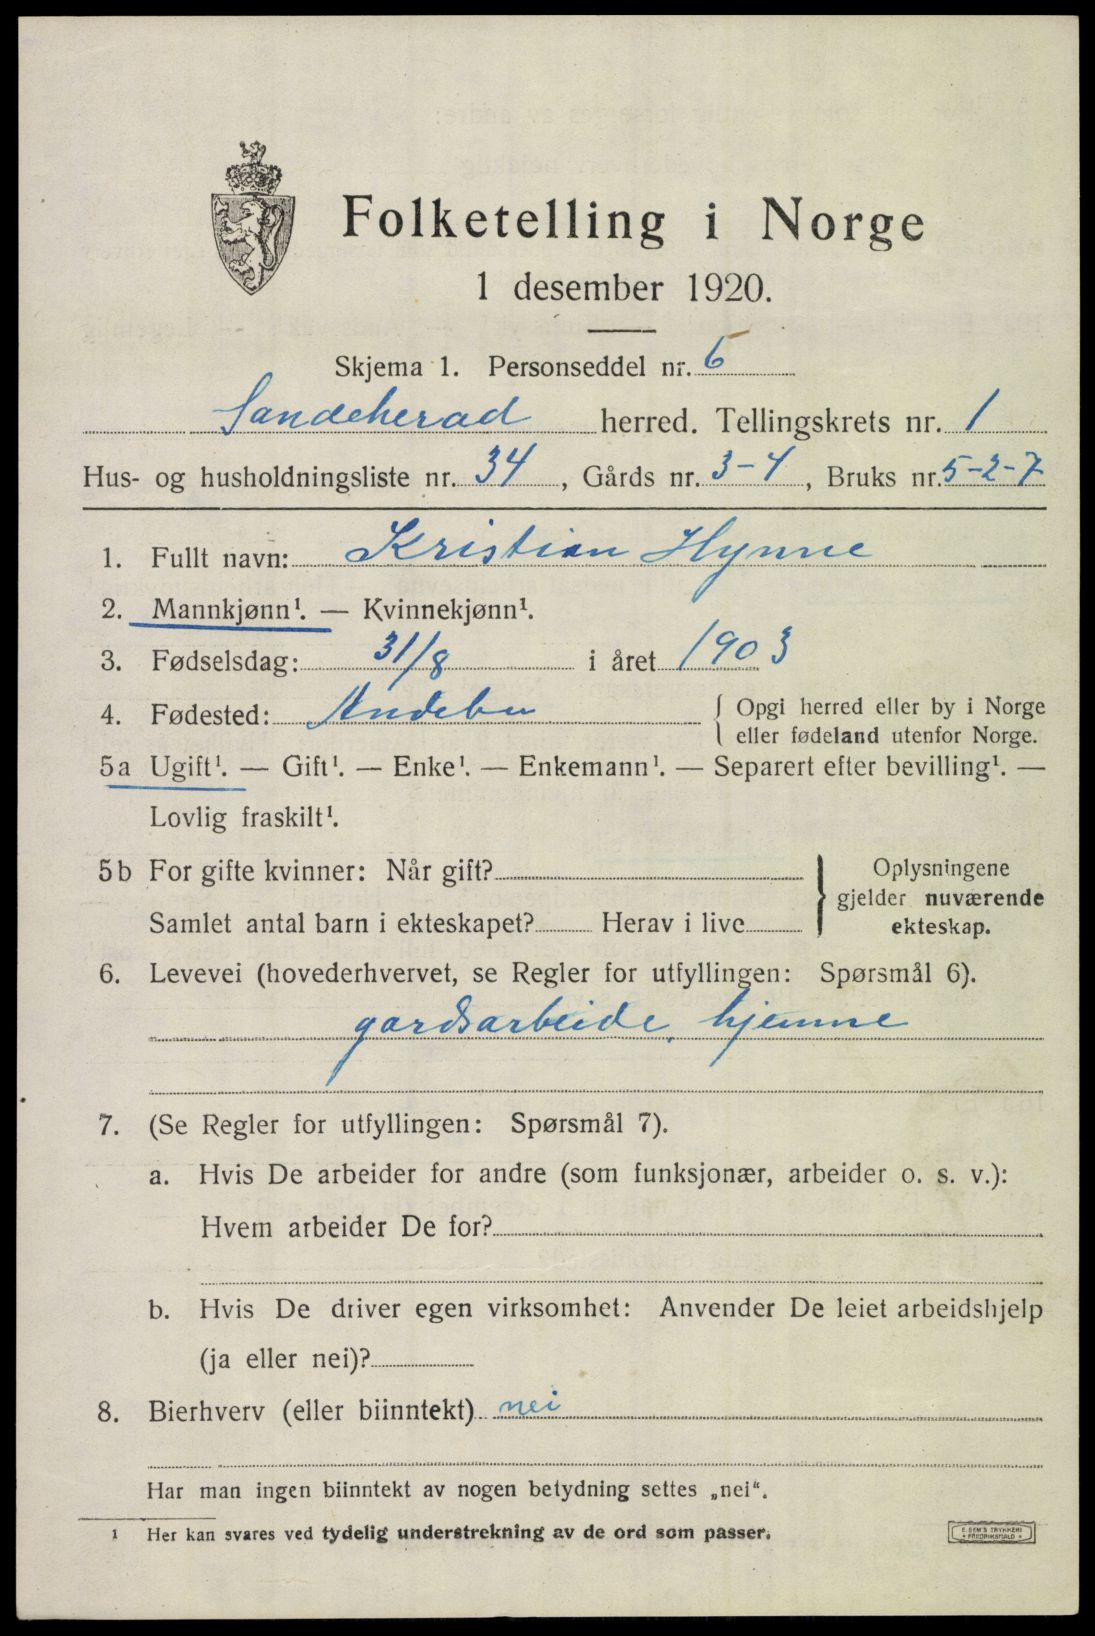 Folketelling i Norge
1 desember 1920.
Skjema 1. Personseddel nr. 6
Sandeherad herred. Tellingskrets nr. 1
Hus- og husholdningsliste nr. 34, Gårds nr. 3-4, Bruks nr. 5-2-7
1. Fullt navn: Kristian Hynne
2. Mannkjønn¹. — Kvinnekjønn¹.
3. Fødselsdag: 31/8 i året 1903
4. Fødested: Andebu { Opgi herred eller by i Norge
eller fødeland utenfor Norge.
5a Ugift¹. — Gift¹. — Enke¹. — Enkemann¹. — Separert efter bevilling¹. —
Lovlig fraskilt¹.
5b For gifte kvinner: Når gift?
Samlet antal barn i ekteskapet? Herav i live
} Oplysningene
gjelder nuværende
ekteskap.
6. Levevei (hovederhvervet, se Regler for utfyllingen: Spørsmål 6).
gardsarbeide, hjemme
7. (Se Regler for utfyllingen: Spørsmål 7).
a. Hvis De arbeider for andre (som funksjonær, arbeider o. s. v.):
Hvem arbeider De for?
b. Hvis De driver egen virksomhet: Anvender De leiet arbeidshjelp
(ja eller nei)?
8. Bierhverv (eller biinntekt) nei
Har man ingen biinntekt av nogen betydning settes „nei".
¹ Her kan svares ved tydelig understrekning av de ord som passer.
E. SEM'S TRYKKERI
FREDRIKSHALD